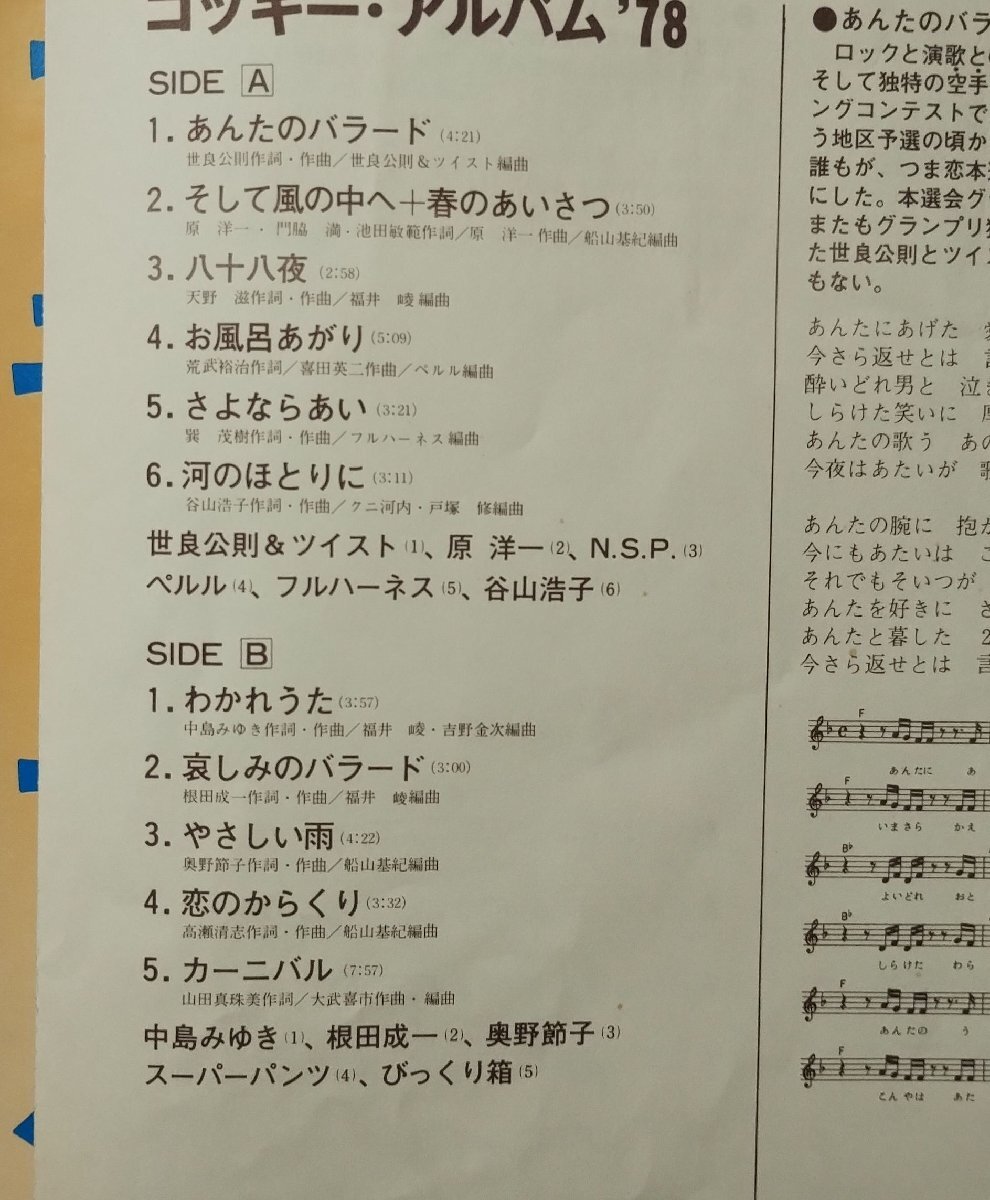 コッキー・アルバム '78
SIDE A
1. あんたのバラード (4:21)
世良公則作詞・作曲／世良公則＆ツイスト編曲
2. そして風の中へ＋春のあいさつ (3:50)
原　洋一・門脇　満・池田敏範作詞／原　洋一作曲／船山基紀編曲
3. 八十八夜 (2:58)
天野　滋作詞・作曲／福井　崚編曲
4. お風呂あがり (5:09)
荒武裕治作詞／喜田英二作曲／ペルル編曲
5. さよならあい (3:21)
巽　茂樹作詞・作曲／フルハーネス編曲
6. 河のほとりに (3:11)
谷山浩子作詞・作曲／クニ河内・戸塚　修編曲
世良公則＆ツイスト(1)、原　洋一(2)、N.S.P.(3)
ペルル(4)、フルハーネス(5)、谷山浩子(6)
SIDE B
1. わかれうた (3:57)
中島みゆき作詞・作曲／福井　崚・吉野金次編曲
2. 哀しみのバラード (3:00)
根田成一作詞・作曲／福井　崚編曲
3. やさしい雨 (4:22)
奥野節子作詞・作曲／船山基紀編曲
4. 恋のからくり (3:32)
高瀬清志作詞・作曲／船山基紀編曲
5. カーニバル (7:57)
山田真珠美作詞／大武喜市作曲・編曲
中島みゆき(1)、根田成一(2)、奥野節子(3)
スーパーパンツ(4)、びっくり箱(5)
●あんたのバラ
ロックと演歌と
そして独特の空手
ングコンテストで
う地区予選の頃か
誰もが、つま恋本
にした。本選会グ
またもグランプリ
た世良公則とツイ
もない。
あんたにあげた
今さら返せとは　言
酔いどれ男と　泣き
しらけた笑いに
あんたの歌う　あの
今夜はあたいが　歌
あんたの腕に　抱か
今にもあたいは　こ
それでもそいつが
あんたを好きに　さ
あんたと暮した　2
今さら返せとは　言
F
あんたに　あ
F
いまさら　かえ
B♭
よいどれ　おと
B♭
しらけた　わら
F
あんたの　う
F
こんやは　あた